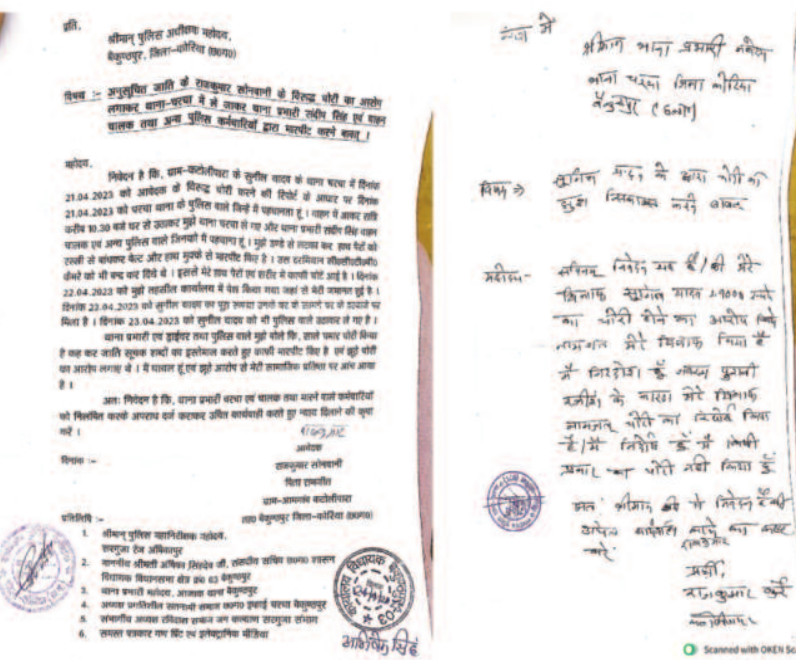 प्रति,
श्रीमान् पुलिस अधीक्षक महोदय,
बैकुण्ठपुर, जिला-कोरिया (छ०ग०)
विषय :- अनुसूचित जाति के राजकुमार सोनवानी के विरुद्ध चोरी का आरोप
लगाकर थाना-चरचा में ले जाकर थाना प्रभारी संदीप सिंह एवं वाहन
चालक तथा अन्य पुलिस कर्मचारियों द्वारा मारपीट करने बाबत् ।
महोदय,
निवेदन है कि, ग्राम-कटोलीपारा के सुनील यादव के थाना चरचा में दिनांक
21.04.2023 को आवेदक के विरुद्ध चोरी करने की रिपोर्ट के आधार पर दिनांक
21.04.2023 को चरचा थाना के पुलिस वाले जिन्हें मैं पहचानता हूं । वाहन में आकर रात्रि
करीब 10.30 बजे घर से उठाकर मुझे थाना चरचा ले गए और थाना प्रभारी संदीप सिंह वाहन
चालक एवं अन्य पुलिस वाले जिनको मैं पहचाना हूं । मुझे डण्डे से लटका कर हाथ पैरों को
रस्सी से बांधकर बेल्ट और हाथ मुक्के से मारपीट किए है । उस दरमियान सीसीटीव्ही
कैमरे को भी बन्द कर दिये थे । इससे मेरे हाथ पैरों एवं शरीर में काफी चोट आई है । दिनांक
22.04.2023 को मुझे तहसील कार्यालय में पेश किया गया जहां से मेरी जमानत हुई है ।
दिनांक 23.04.2023 को सुनील यादव का पूरा रूपया उनके घर के सामने घर के
मिला है । दिनांक 23.04.2023 को सुनील यादव को भी पुलिस वाले उठाकर ले गए है ।
थाना प्रभारी एवं ड्राईवर तथा पुलिस वाले मुझे बोले कि, साले चमार चोरी किया
है कह कर जाति सूचक शब्दों का इस्तेमाल करते हुए काफी मारपीट किए है एवं झूठे चोरी
का आरोप लगाए थे । मैं घायल हूं एवं झूठे आरोप से मेरी सामाजिक प्रतिष्ठा पर आंच आया
है ।
अतः निवेदन है कि, थाना प्रभारी चरचा एवं चालक तथा मारने वाले कर्मचारियों
को निलंबित करके अपराध दर्ज कराकर उचित कार्यवाही करते हुए न्याय दिलाने की कृपा
करें ।
आवेदक
दिनांक :-
राजकुमार सोनवानी
पिता रामजीत
ग्राम-आमगांव कटोलीपारा
तह० बैकुण्ठपुर जिला-कोरिया (छ०ग०)
प्रतिलिपि :-
1. श्रीमान् पुलिस महानिरीक्षक महोदय,
सरगुजा रेंज अंबिकापुर
2. माननीय श्रीमती अम्बिका सिंहदेव जी, संसदीय सचिव छ०ग० शासन
विधायक विधानसभा क्षेत्र क्र० 03 बैकुण्ठपुर
3. थाना प्रभारी महोदय, आजाक थाना बैकुण्ठपुर
4. अध्यक्ष प्रगतिशील सतनामी समाज छ०ग० इकाई चरचा बैकुण्ठपुर
5. संभागीय अध्यक्ष रविदास समाज जन कल्याण सरगुजा संभाग
6. समस्त पत्रकार गण प्रिंट एवं इलेक्ट्रानिक मीडिया
में
श्रीमान थाना प्रभारी महोदय
थाना चरचा जिला कोरिया
बैकुण्ठपुर (छ०ग०)
विषय → सुनिल यादव के द्वारा चोरी का
झुठा करने बाबत
महोदय - सविनय निवेदन यह है/की मेरे
खिलाफ सुनिल यादव
का चोरी होने का आरोप
मेरे खिलाफ किया है
मैं निरदोश हुँ पुरानी
रंजीश के कारण मेरे खिलाफ
चोरी का रिपोर्ट किया
है/मैं निर्दोष हुँ मैं किसी
प्रकार का चोरी नही किया हुँ
अतः श्रीमान से निवेदन है की
उचित कार्यवाही करने का कष्ट
करें
राजकुमार
प्रार्थी
राजकुमार
Scanned with OKEN Sc